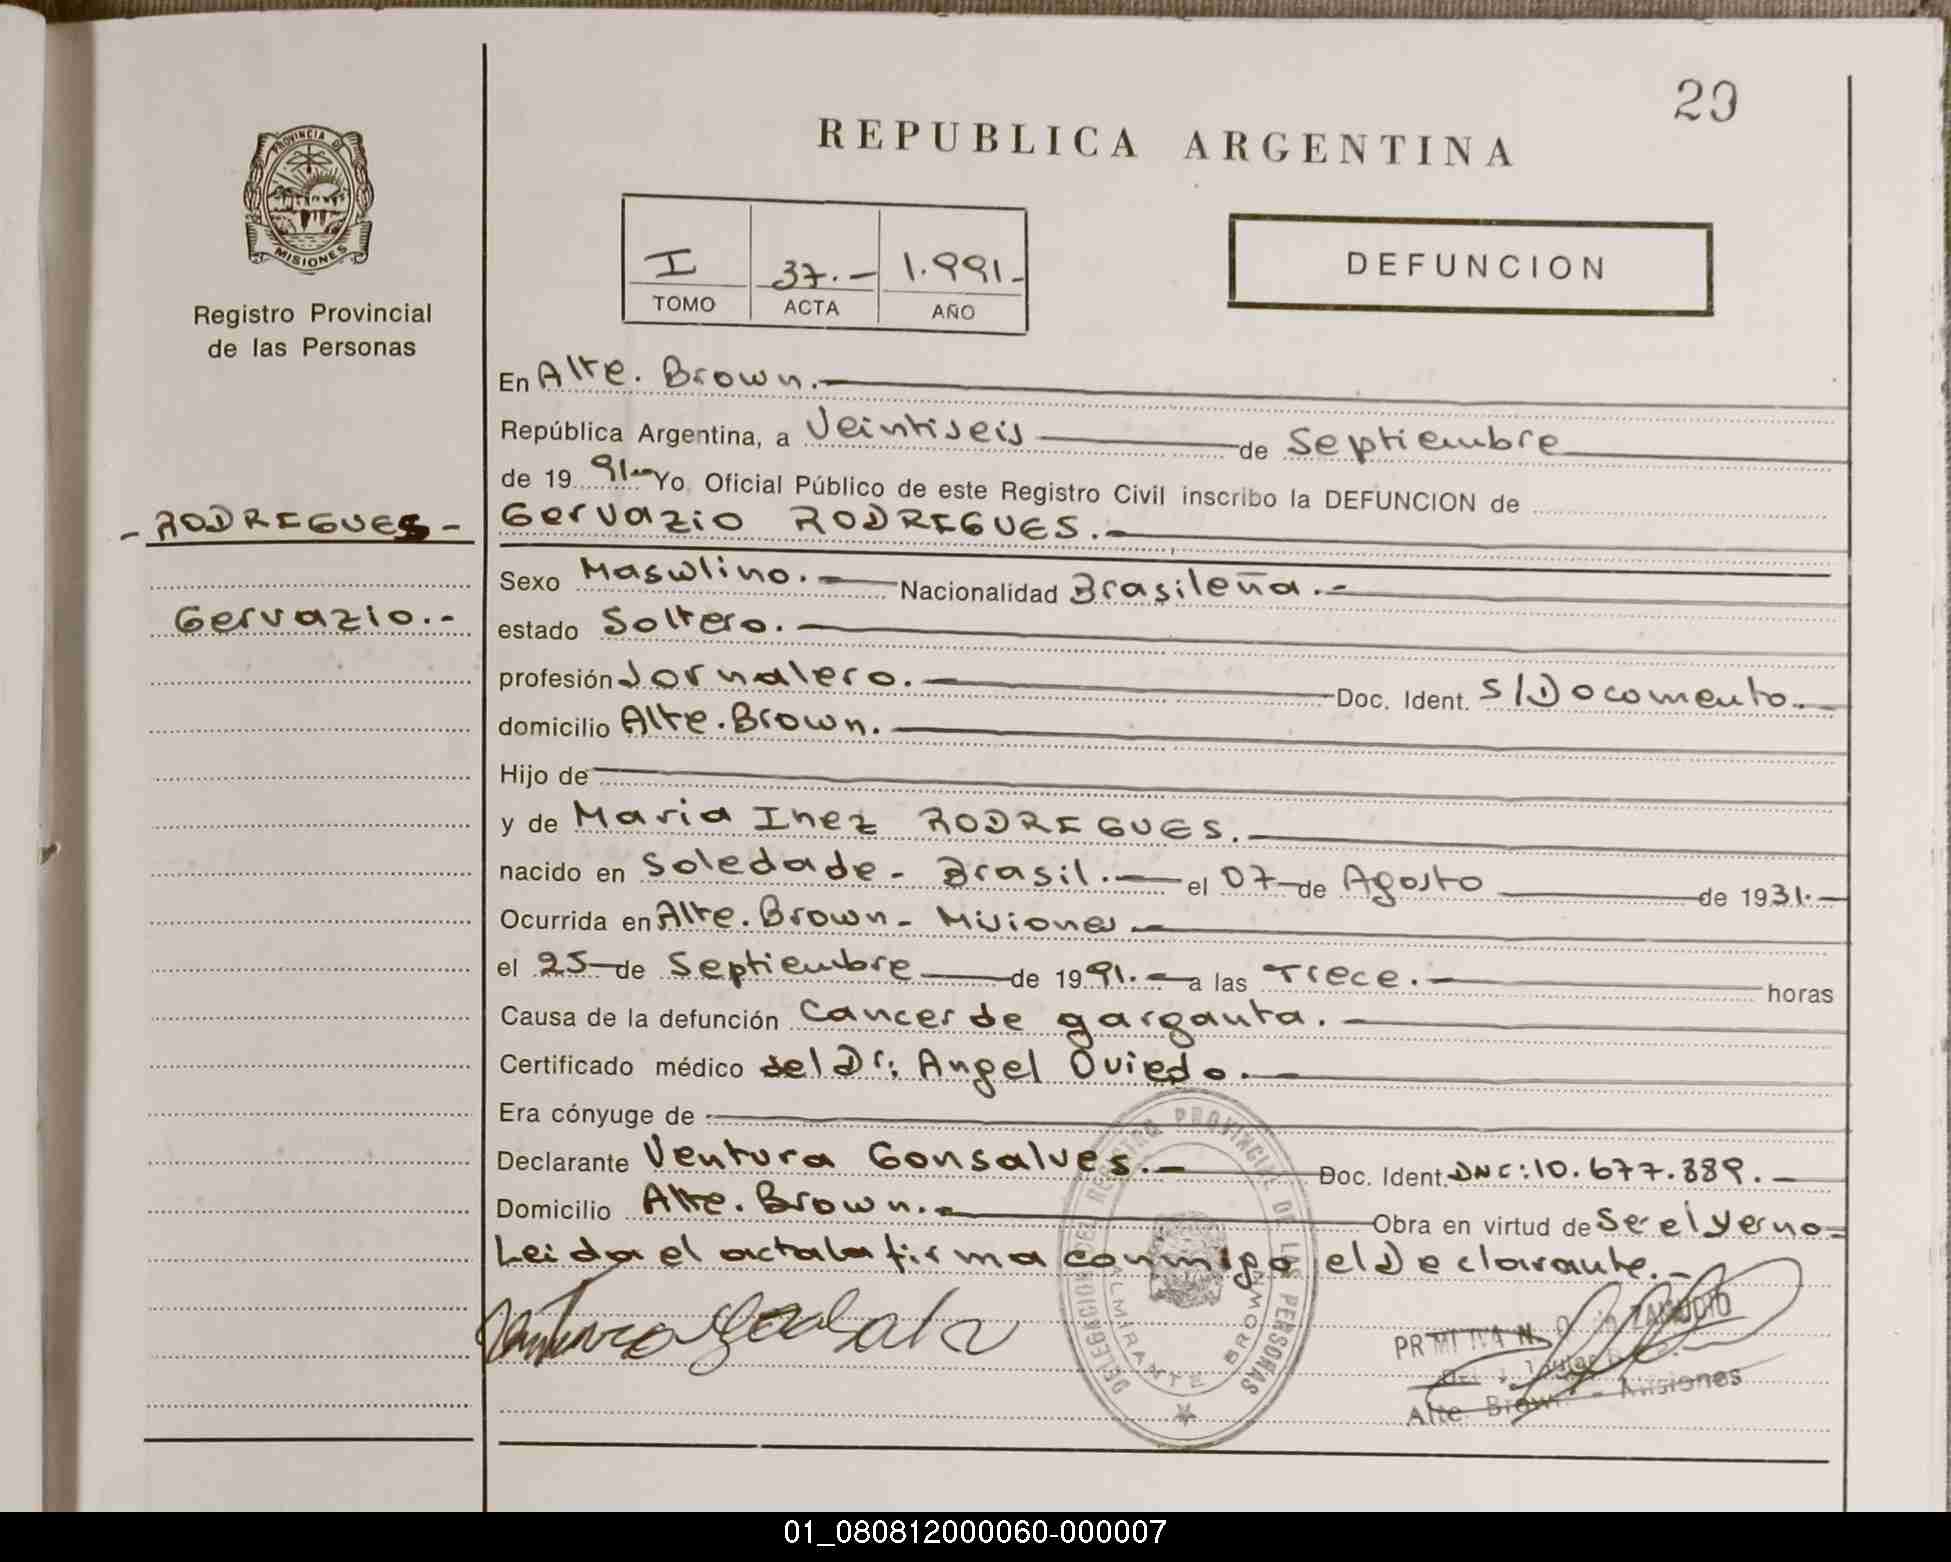 20
REPUBLICA ARGENTINA
PROVINCIA DE
MISIONES
Registro Provincial
de las Personas
I 37.- 1.991-
TOMO ACTA AÑO
DEFUNCION
En Alte. Brown.-
República Argentina, a Veintiseis de Septiembre
de 19 91.- Yo, Oficial Público de este Registro Civil inscribo la DEFUNCION de
- RODREGUES -
Gervazio RODREGUES.-
Sexo Masculino.- Nacionalidad Brasileña.-
Gervazio.-
estado Soltero.-
profesión Jornalero.- Doc. Ident. S/Documento.-
domicilio Alte. Brown.-
Hijo de
y de Maria Inez RODREGUES.-
nacido en Soledade - Brasil.- el 07 de Agosto de 1931.-
Ocurrida en Alte. Brown - Misiones
el 25 de Septiembre de 1991.- a las Trece.- horas
Causa de la defunción Cancer de garganta.-
Certificado médico del Dr: Angel Oviedo.-
Era cónyuge de
Declarante Ventura Gonsalves.- Doc. Ident. DNI: 10.677.889.-
Domicilio Alte. Brown.- Obra en virtud de Ser el yerno-
Leida el acta la firma conmigo el Declarante.-
DELEGACION DEL REGISTRO PROVINCIAL DE LAS PERSONAS
ALMIRANTE BROWN
ZAMUDIO
Alte. Brown - Misiones
01_080812000060-000007